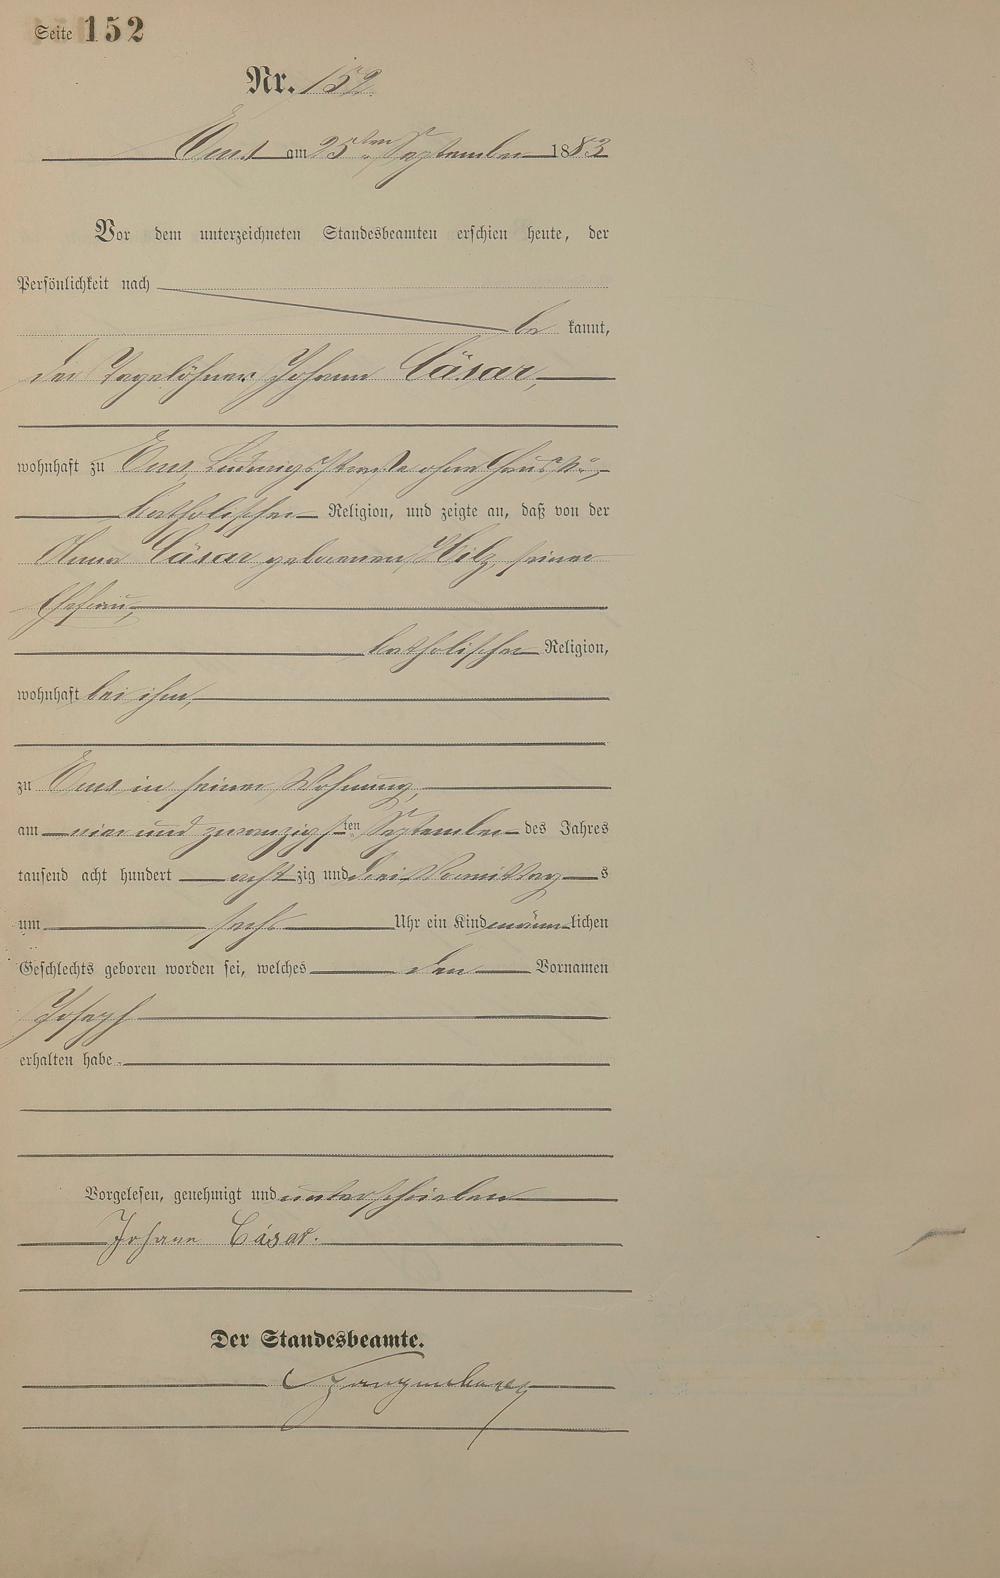 Seite 152
Nr. 152.
Ems am 25ten September 1883
Vor dem unterzeichneten Standesbeamten erschien heute, der
Persönlichkeit nach
be kannt,
der Tagelöhner Johann Cäsar,
wohnhaft zu Ems, Ludwigsstraße ohne
katholischer Religion, und zeigte an, daß von der
Anna Cäsar geborenen Hilz, seiner
Ehefrau,
katholischer Religion,
wohnhaft bei ihm,
zu Ems in seiner Wohnung,
am vier und zwanzigsten September des Jahres
tausend acht hundert acht zig und drei Vormittag s
um sechs Uhr ein Kind männ lichen
Geschlechts geboren worden sei, welches den Vornamen
Joseph
erhalten habe.
Vorgelesen, genehmigt und unterschrieben
Johann Cäsar.
Der Standesbeamte.